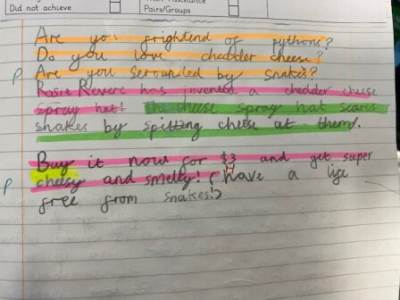 Did not achieve
Pairs/Groups
Are you frightend of pythons?
Do you love chedder cheese?
P Are you serounded by snakes?
Rosie Revere has invented a chedder cheese
spray hat! The cheese spray hat scares
snakes by spitting cheese at them.
Buy it now for $3 and get super
P cheesy and smelly! (have a life
free from snakes!)